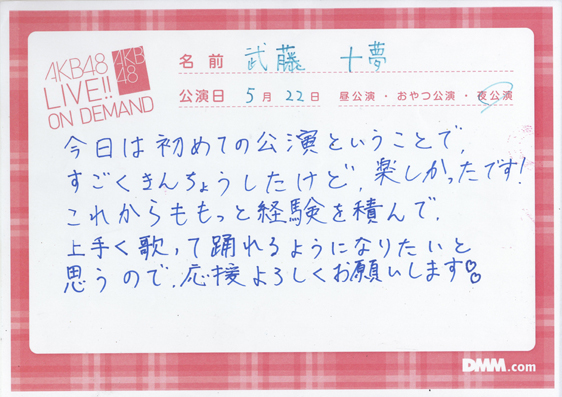 AKB48
LIVE!!
ON DEMAND
AKB
48
名前 武藤 十夢
公演日 5月22日 昼公演・おやつ公演・夜公演
今日は初めての公演ということで、
すごくきんちょうしたけど、楽しかったです!
これからももっと経験を積んで、
上手く歌って踊れるようになりたいと
思うので、応援よろしくお願いします♡
DMM.com